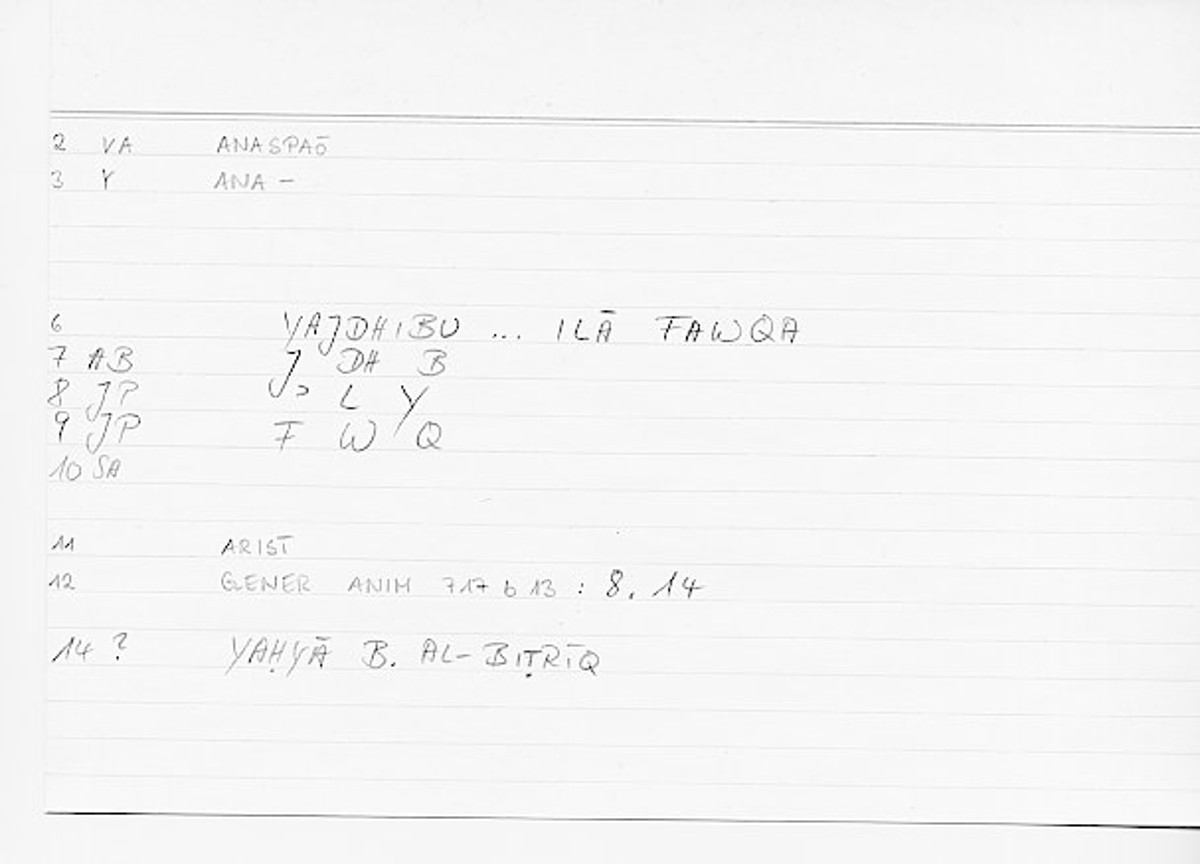 2 VA ANASPAŌ
3 Y ANA -
6 YAJDHIBU ... ILĀ FAWQA
7 AB J DH B
8 JP ɔ L Y
9 JP F W Q
10 SA
11 ARIST
12 GENER ANIM 717 b 13 : 8, 14
14 ? YAḤYĀ B. AL-BIṬRĪQ